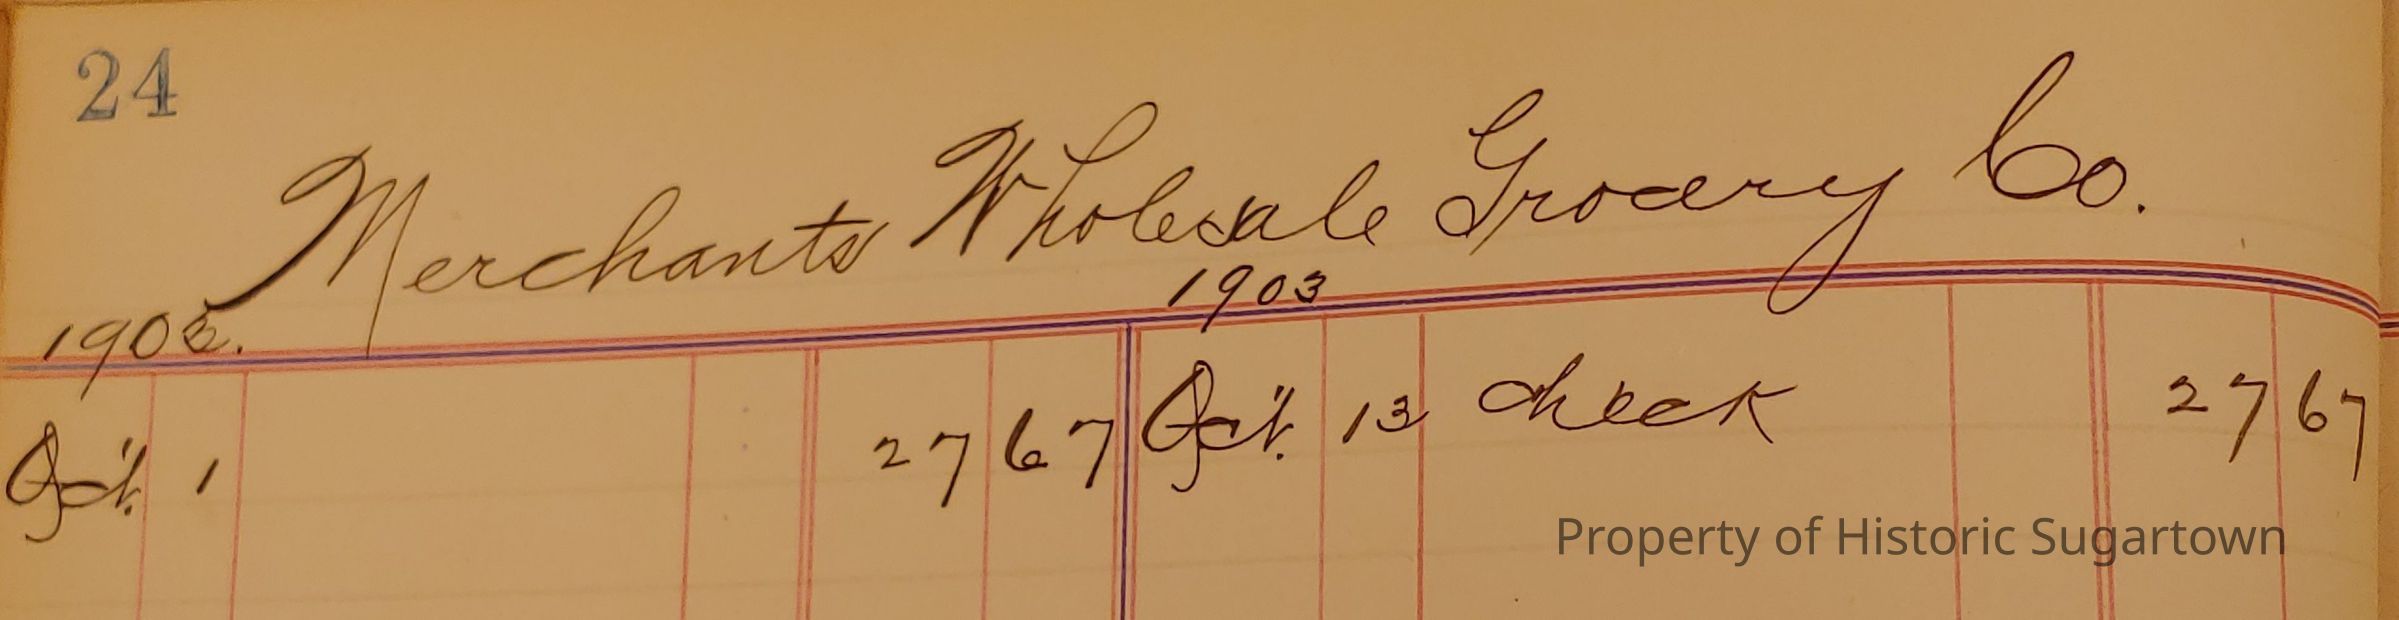 24
Merchants Wholesale Grocery Co.
1903. 1903
Oct. 1 27 67 Oct. 13 check 27 67
Property of Historic Sugartown